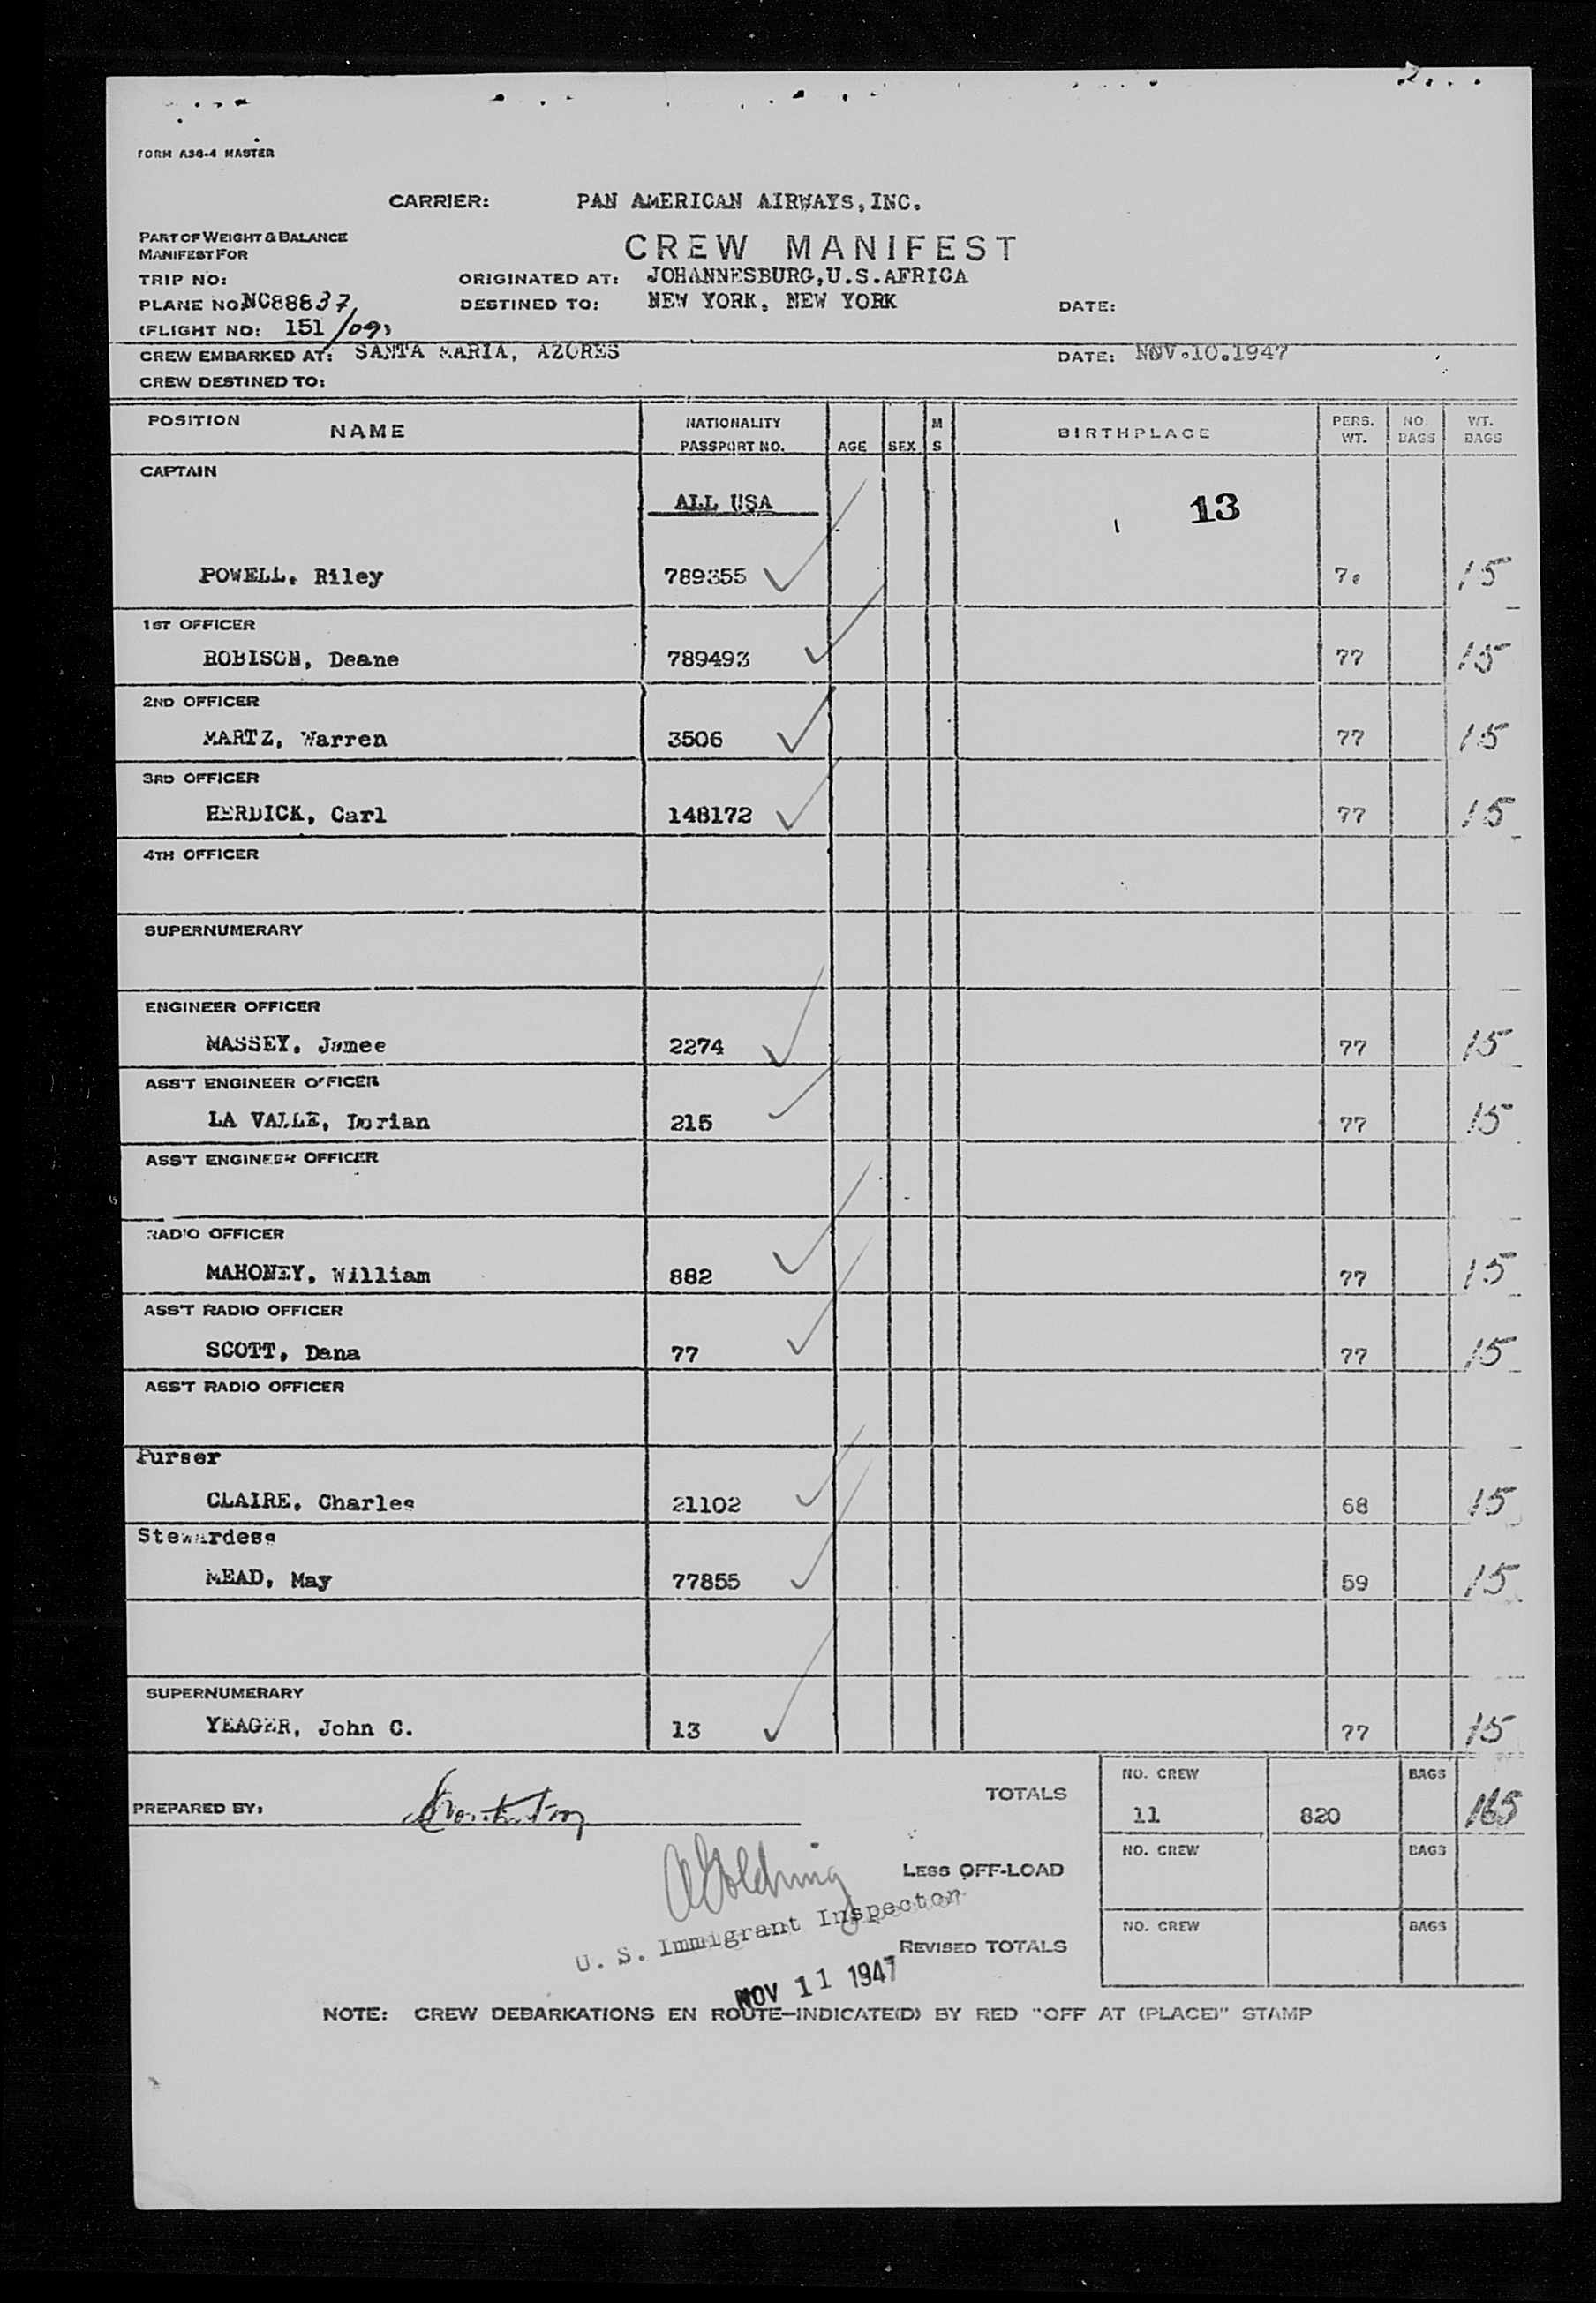 FORM A36-4 MASTER
CARRIER: PAN AMERICAN AIRWAYS,INC.
PART OF WEIGHT & BALANCE
MANIFEST FOR
CREW MANIFEST
TRIP NO: ORIGINATED AT: JOHANNESBURG,U.S.AFRICA
PLANE NO: NC88837 DESTINED TO: NEW YORK, NEW YORK DATE:
(FLIGHT NO: 151/09)
CREW EMBARKED AT: SANTA MARIA, AZORES DATE: NOV.10.1947
CREW DESTINED TO:
POSITION NAME NATIONALITY PASSPORT NO. AGE SEX M S BIRTHPLACE PERS. WT. NO. BAGS WT. BAGS
CAPTAIN
ALL USA 13
POWELL, Riley 789355 15
1ST OFFICER
ROBISON, Deane 789493 77 15
2ND OFFICER
MARTZ, Warren 3506 77 15
3RD OFFICER
HERDICK, Carl 148172 77 15
4TH OFFICER
SUPERNUMERARY
ENGINEER OFFICER
MASSEY, James 2274 77 15
ASS'T ENGINEER OFFICER
LA VALLE, Dorian 215 77 15
ASS'T ENGINEER OFFICER
RADIO OFFICER
MAHONEY, William 882 77 15
ASS'T RADIO OFFICER
SCOTT, Dana 77 77 15
ASS'T RADIO OFFICER
Purser
CLAIRE, Charles 21102 68 15
Stewardess
MEAD, May 77855 59 15
SUPERNUMERARY
YEAGER, John C. 13 77 15
PREPARED BY: TOTALS NO. CREW 11 820 BAGS 165
LESS OFF-LOAD NO. CREW BAGS
A Goldring
U. S. Immigrant Inspector
REVISED TOTALS NO. CREW BAGS
NOV 11 1947
NOTE: CREW DEBARKATIONS EN ROUTE—INDICATE(D) BY RED "OFF AT (PLACE)" STAMP